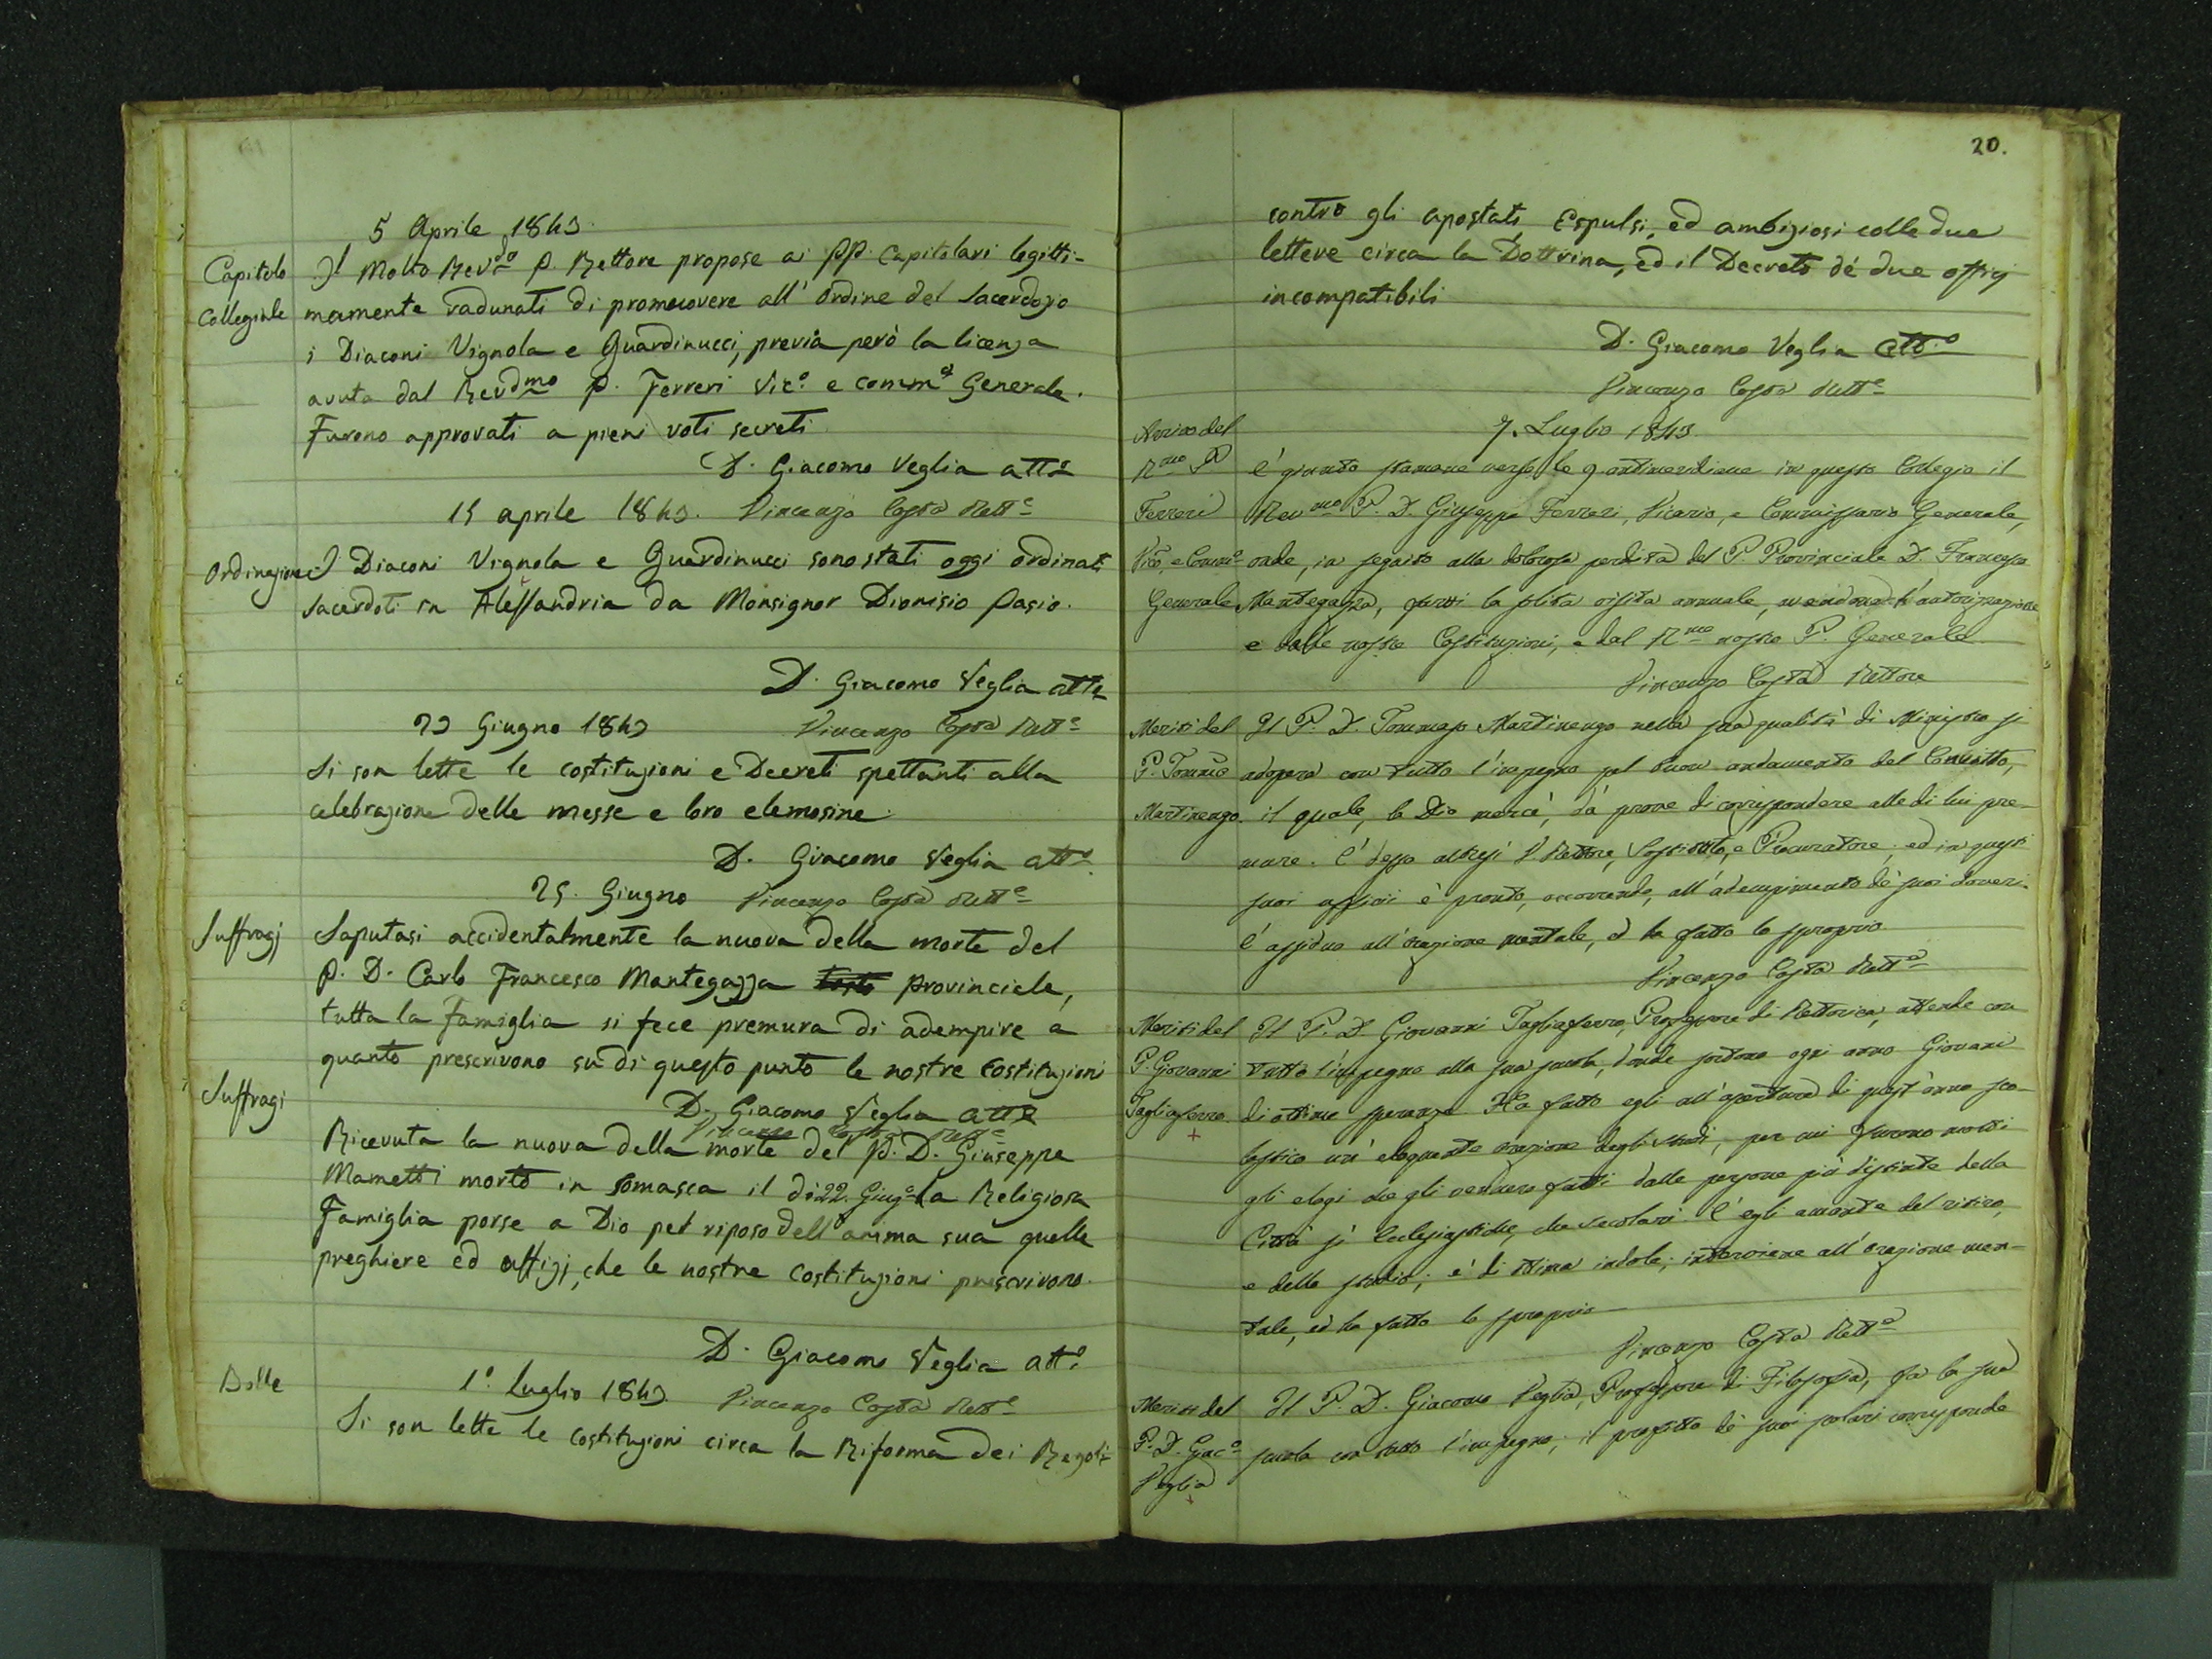 5 Aprile 1843.
Capitolo Collegiale
Il Molto Rev.do P. Rettore propose ai PP. Capitolari legitti-
mamente radunati di promuovere all' ordine del Sacerdozio
i Diaconi Vignola e Guardinucci, previa però la licenza
avuta dal Revdmo P. Ferreri Vic.o e Comm.o Generale.
Furono approvati a pieni voti secreti
D. Giacomo Veglia att.o
15 aprile 1843. Vincenzo Costa Rett.e
Ordinazione
I Diaconi Vignola e Guardinucci sono stati oggi ordinati
Sacerdoti in Alessandria da Monsignor Dionisio Pasio.
D. Giacomo Veglia att.o
23 Giugno 1843 Vincenzo Costa Rett.e
Si son lette le costituzioni e Decreti spettanti alla
celebrazione delle messe e loro elemosine.
D. Giacomo Veglia att.o
25. Giugno Vincenzo Costa Rett.e
Suffragj
Saputasi accidentalmente la nuova della morte del
P. D. Carlo Francesco Mantegazza Provinciale,
tutta la Famiglia si fece premura di adempire a
quanto prescrivono su di questo punto le nostre Costituzioni
D. Giacomo Veglia att.o
Vincenzo Costa Rett.e
Suffragi
Ricevuta la nuova della morte del P. D. Giuseppe
Mametti morto in Somasca il di 22. Giug.o la Religiosa
Famiglia porse a Dio pel riposo dell' anima sua quelle
preghiere ed uffizj, che le nostre Costituzioni prescrivono.
D. Giacomo Veglia att.o
1.o Luglio 1843. Vincenzo Costa Rett.e
Bolle
Si son lette le costituzioni circa la Riforma dei Regoli
20.
contro gli apostati Espulsi, ed ambiziosi colle due
lettere circa la Dottrina, ed il Decreto de' due offizj
incompatibili
D. Giacomo Veglia att.o
Vincenzo Costa Rett.e
7. Luglio 1843.
Arrivo del R.mo P. Ferreri Vic.o, e Comm.o Generale
È giunto stamane verso le 9 antimeridiane in questo Collegio il
Rev.mo P. D. Giuseppe Ferreri, Vicario, e Commissario Generale,
onde, in seguito alla dolorosa perdita del P. Provinciale D. Francesco
Mantegazza, farvi la solita visita annuale, avendone l'autorizzazione
e dalle nostre Costituzioni, e dal R.mo nostro P. Generale
Vincenzo Costa Rettore
Meriti del P. Tomm.o Martinengo.
Il P. D. Tommaso Martinengo nella sua qualità di Ministro si
adopera con tutto l'impegno pel buon andamento del Convitto,
il quale, la Dio mercè, dà prove di corrispondere alle di lui pre-
mure. È desso altresì V. Rettore, Sostituto, e Procuratore; ed in questi
suoi ufficii è pronto, occorrendo, all'adempimento de' suoi doveri.
È assiduo all'orazione mentale, ed ha fatto lo sproprio
Vincenzo Costa Rett.e
Meriti del P. Giovanni Tagliaferro.
Il P. D. Giovanni Tagliaferro, Professore di Rettorica, attende con
tutto l'impegno alla sua scuola, donde sortono ogni anno Giovani
di ottime speranze. Ha fatto egli all'apertura di quest'anno sco-
lastico un' eloquente orazione degli studi, per cui furono molti
gli elogi che gli vennero fatti dalle persone più distinte della
Città sì Ecclesiastiche, che secolari. È egli amante del ritiro,
e dello studio; è di ottima indole; interviene all'orazione men-
tale, ed ha fatto lo sproprio
Vincenzo Costa Rett.e
Meriti del P. D. Giac.o Veglia
Il P. D. Giacomo Veglia, Professore di Filosofia, fa la sua
scuola con tutto l'impegno; il profitto de' suoi scolari corrisponde